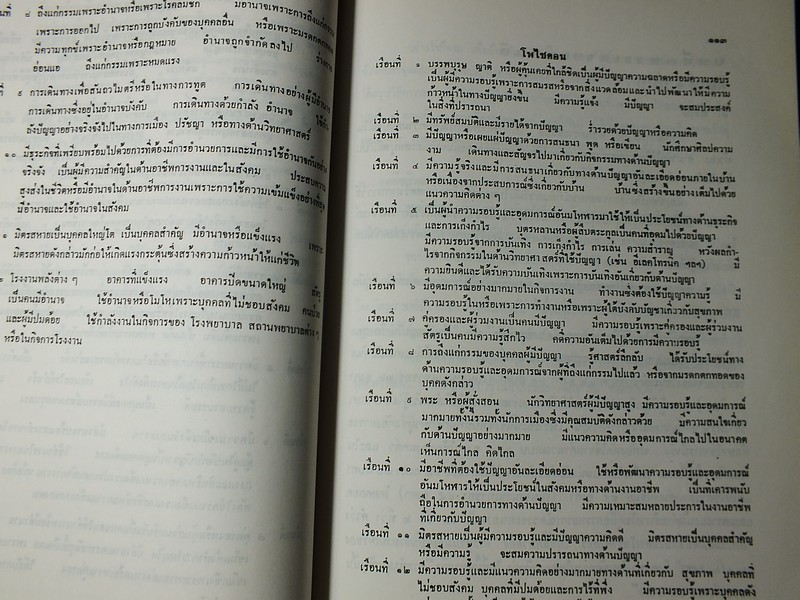 นที่ ๘ ถึงแก่กรรมเพราะอำนาจหรือเพราะโรคลมชัก มีอำนาจเพราะการถึงแก่กรรม
เพราะการออกไป เพราะการถูกบังคับของบุคคลอื่น หรือเพราะมรดกตกทอด
มีความทุกข์เพราะอำนาจหรือกฎหมาย อำนาจถูกจำกัดลงไป ร่างกาย
อ่อนแอ ถึงแก่กรรมเพราะหมดแรง
ที่ ๙ การเดินทางเพื่อสันถวไมตรีหรือในทางการทูต การเดินทางอย่างผู้มีอำนาจ
การเดินทางซึ่งอยู่ในอำนาจบังคับ การเดินทางด้วยกำลัง อำนาจ ใช้กำ
ลังปัญญาอย่างจริงจังไปในทางการเมือง ปรัชญา หรือทางด้านวิทยาศาสตร์
๑๐ มีธุระกิจที่เพรียบพร้อมไปด้วยการที่ต้องมีการอำนวยการและมีการใช้อำนาจกันอย่าง
จริงจัง เป็นผู้มีความสำคัญในด้านอาชีพการงานและในสังคม ประสบความ
สูงส่งในชีวิตหรือมีอำนาจในด้านอาชีพการงานเพราะการใช้ความเข้มแข็งอย่างที่สุด
มีอำนาจและใช้อำนาจในสังคม
๑ มิตรสหายเป็นบุคคลใหญ่โต เป็นบุคคลสำคัญ มีอำนาจหรือแข็งแรง เพราะ
มิตรสหายดังกล่าวมักก่อให้เกิดแรงกระตุ้นซึ่งสร้างความก้าวหน้าให้แก่ชีวิต
๒ โรงงานพลังต่าง ๆ อาคารที่แข็งแรง อาคารปิดขนาดใหญ่ ศัตรู
เป็นคนมีอำนาจ ใช้อำนาจหรือโมโหเพราะบุคคลที่ไม่ชอบสังคม คนป่วย
และผู้มีปมด้อย ใช้กำลังงานในกิจการของ โรงพยาบาล สถานพยาบาลต่าง ๆ
หรือในกิจการโรงงาน
๑๑๓
โพไซดอน
เรือนที่ ๑ บรรพบุรุษ ญาติ หรือผู้คุ้นเคยที่ใกล้ชิดเป็นผู้มีปัญญาความฉลาดหรือมีความรอบรู้
เป็นผู้มีความรอบรู้เพราะการสมรสหรือจากสิ่งแวดล้อมและนำไปพัฒนาให้มีความ
ก้าวหน้าในทางปัญญายิ่งขึ้น มีความรู้แจ้ง มีปัญญา จะสมประสงค์
ในสิ่งที่ปรารถนา
เรือนที่ ๒ มีทรัพย์สมบัติและมีรายได้จากปัญญา ร่ำรวยด้วยปัญญาหรือความคิด
เรือนที่ ๓ มีปัญญาหรือเผยแผ่ปัญญาด้วยการสนธนา พูด หรือเขียน นักศึกษาศิลปความ
งาม เดินทางและสัญจรไปมาเกี่ยวกับกิจกรรมทางด้านปัญญา
เรือนที่ ๔ มีความรู้จริงและมีการสนธนาเกี่ยวกับทางด้านปัญญาอันละเอียดอ่อนภายในบ้าน
หรือเนื่องจากประสบการณ์ซึ่งเกี่ยวกับบ้าน บ้านซึ่งสร้างขึ้นอย่างเต็มไปด้วย
แนวความคิดต่าง ๆ
เรือนที่ ๕ เป็นผู้นำความรอบรู้และอุดมการณ์อันมโหฬารมาใช้ให้เป็นประโยชน์ทางด้านธุระกิจ
และการเก็งกำไร บุตรหลานหรือผู้สืบตระกูลเป็นคนที่อุดมไปด้วยปัญญา
มีความรอบรู้จากการบันเทิง การเก็งกำไร การเล่น ความสำราญ หวังผลกำ-
ไรจากกิจกรรมในด้านวิทยาศาสตร์ที่ใช้ปัญญา (เช่น อีเลคโทรนิค ฯลฯ) มี
ความยินดีและได้รับความบันเทิงเพราะการบันเทิงอันเกี่ยวกับด้านปัญญา
เรือนที่ ๖ มีอุดมการณ์อย่างมากมายในกิจการงาน ทำงานซึ่งต้องใช้ปัญญาความรู้ มี
ความรอบรู้ในหรือเพราะการทำงานหรือเพราะผู้ใต้บังคับบัญชาเกี่ยวกับสุขภาพ
เรือนที่ ๗ คู่ครองและผู้ร่วมงานเป็นคนมีปัญญา มีความรอบรู้เพราะคู่ครองและผู้ร่วมงาน
ศัตรูเป็นคนมีความรู้สึกไว คดีความอันเต็มไปด้วยการมีความรอบรู้
เรือนที่ ๘ การถึงแก่กรรมของบุคคลผู้มีปัญญา รู้ศาสตร์ลึกลับ ได้รับประโยชน์ทาง
ด้านความรอบรู้และอุดมการณ์จากผู้ที่ถึงแก่กรรมไปแล้ว หรือจากมรดกตกทอดของ
บุคคดังกล่าว
เรือนที่ ๙ พระ หรือผู้สั่งสอน นักวิทยาศาสตร์ผู้มีปัญญาสูง มีความรอบรู้และอุดมการณ์
มากมายทั้งนี้รวมทั้งนักการเมืองซึ่งมีคุณสมบัติดังกล่าวด้วย มีความสนใจเกี่ยว
กับด้านปัญญาอย่างมากมาย มีแนวความคิดหรืออุดมการณ์ไกลไปในอนาคต
เห็นการณ์ไกล คิดไกล
เรือนที่ ๑๐ มีอาชีพที่ต้องใช้ปัญญาอันละเอียดอ่อน ใช้หรือพัฒนาความรอบรู้และอุดมการณ์
อันมโหฬารให้เป็นประโยชน์ในสังคมหรือทางด้านงานอาชีพ เป็นที่เคารพนับ
ถือในการอำนวยการทางด้านปัญญา มีความเหมาะสมหลายประการในงานอาชีพ
ที่เกี่ยวกับปัญญา
เรือนที่ ๑๑ มิตรสหายเป็นผู้มีความรอบรู้และมีปัญญาความคิดดี มิตรสหายเป็นบุคคลสำคัญ
หรือมีความรู้ จะสมความปรารถนาทางด้านปัญญา
เรือนที่ ๑๒ มีความรอบรู้และมีแนวความคิดอย่างมากมายทางด้านที่เกี่ยวกับ สุขภาพ บุคคลที่
ไม่ชอบสังคม บุคคลที่มีปมด้อยและการไร้ที่พึ่ง มีความรอบรู้เพราะบุคคลดัง